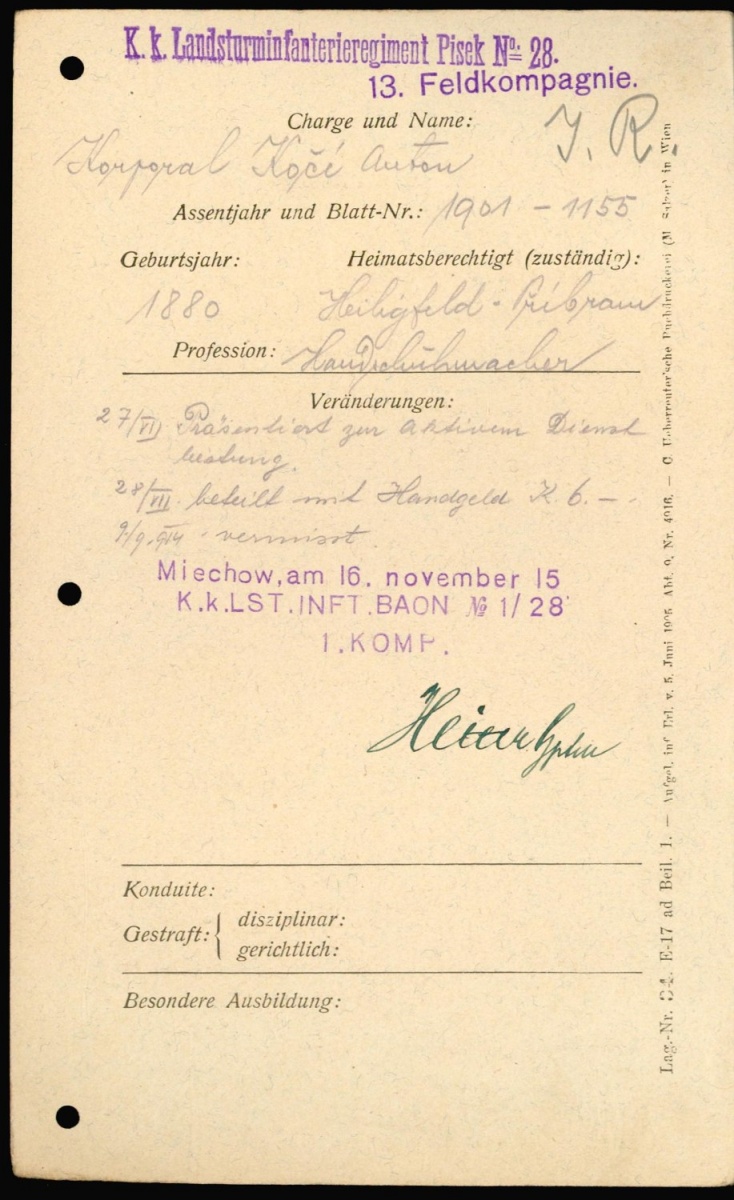 K. k. Landsturminfanterieregiment Pisek No. 28.
13. Feldkompagnie.
Charge und Name:
J. R.
Korporal Kočí Anton
Assentjahr und Blatt-Nr.: 1901 - 1155
Geburtsjahr: Heimatsberechtigt (zuständig):
1880 Heiligfeld - Příbram
Profession: Handschuhmacher
Veränderungen:
27/VII Präsentiert zur aktivem Dienst
leistung.
28/VII beteilt mit Handgeld K 6. -
9/9. 914 vermisst.
Miechow, am 16. november 15
K.k.LST.INFT.BAON № 1/28
1.KOMP.
Konduite:
Gestraft: { disziplinar:
gerichtlich:
Besondere Ausbildung:
Lag.-Nr. 34. E-17 ad Beil. 1. — Aufgel. inf. Erl. v. 5. Juni 1905 Abt. 9, Nr. 4916. — C. Ueberreuter'sche Buchdruckerei (M. Salzer) in Wien